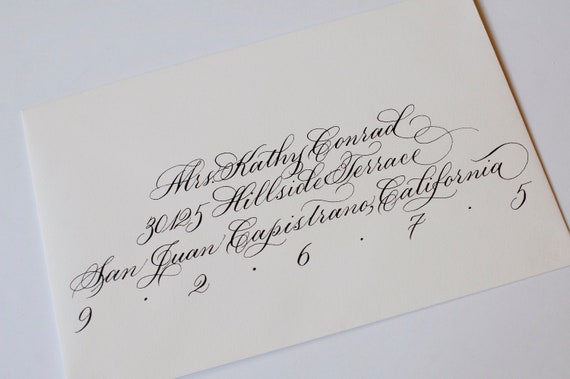 Mrs. Kathy Conrad
30125 Hillside Terrace
San Juan Capistrano, California
9 · 2 · 6 · 7 · 5